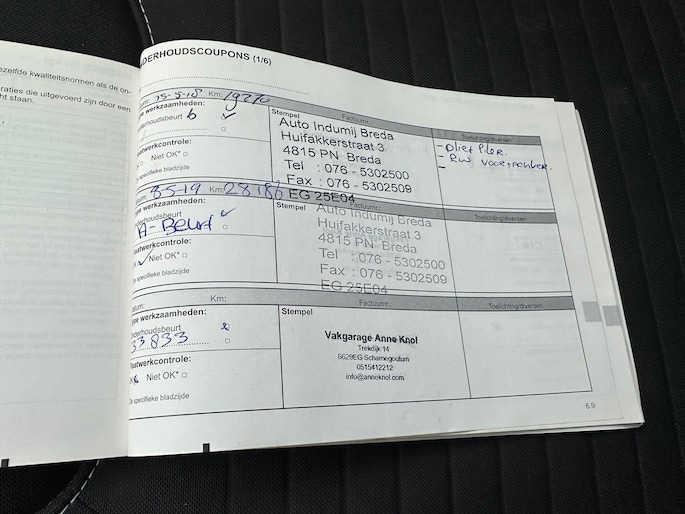 ezelfde kwaliteitsnormen als de on-
raties die uitgevoerd zijn door een
ht staan.
NDERHOUDSCOUPONS (1/6)
Km: 19270
ype werkzaamheden:
nderhoudsbeurt b
aatwerkcontrole:
Niet OK*
De specifieke bladzijde
Stempel
Factuurnr.:
Auto Indumij Breda
Huifakkerstraat 3
4815 PN Breda
Tel : 076 - 5302500
Fax : 076 - 5302509
EG 25E04
Toelichting/diversen
- Oliefilter.
- Rw voor+achter.
-
Km: 28186
nderhoudsbeurt
A-Beurt
aatwerkcontrole:
OK Niet OK*
De specifieke bladzijde
Stempel
Factuurnr.:
Auto Indumij Breda
Huifakkerstraat 3
4815 PN Breda
Tel : 076 - 5302500
Fax : 076 - 5302509
EG 25E04
Toelichting/diversen
atum:
Km:
Factuurnr.:
Toelichting/diversen
ype werkzaamheden:
nderhoudsbeurt
33833
aatwerkcontrole:
OK Niet OK*
De specifieke bladzijde
Stempel
Vakgarage Anne Knol
Trekdijk 14
8629EG Scharnegoutum
0515412212
info@anneknol.com
6.9